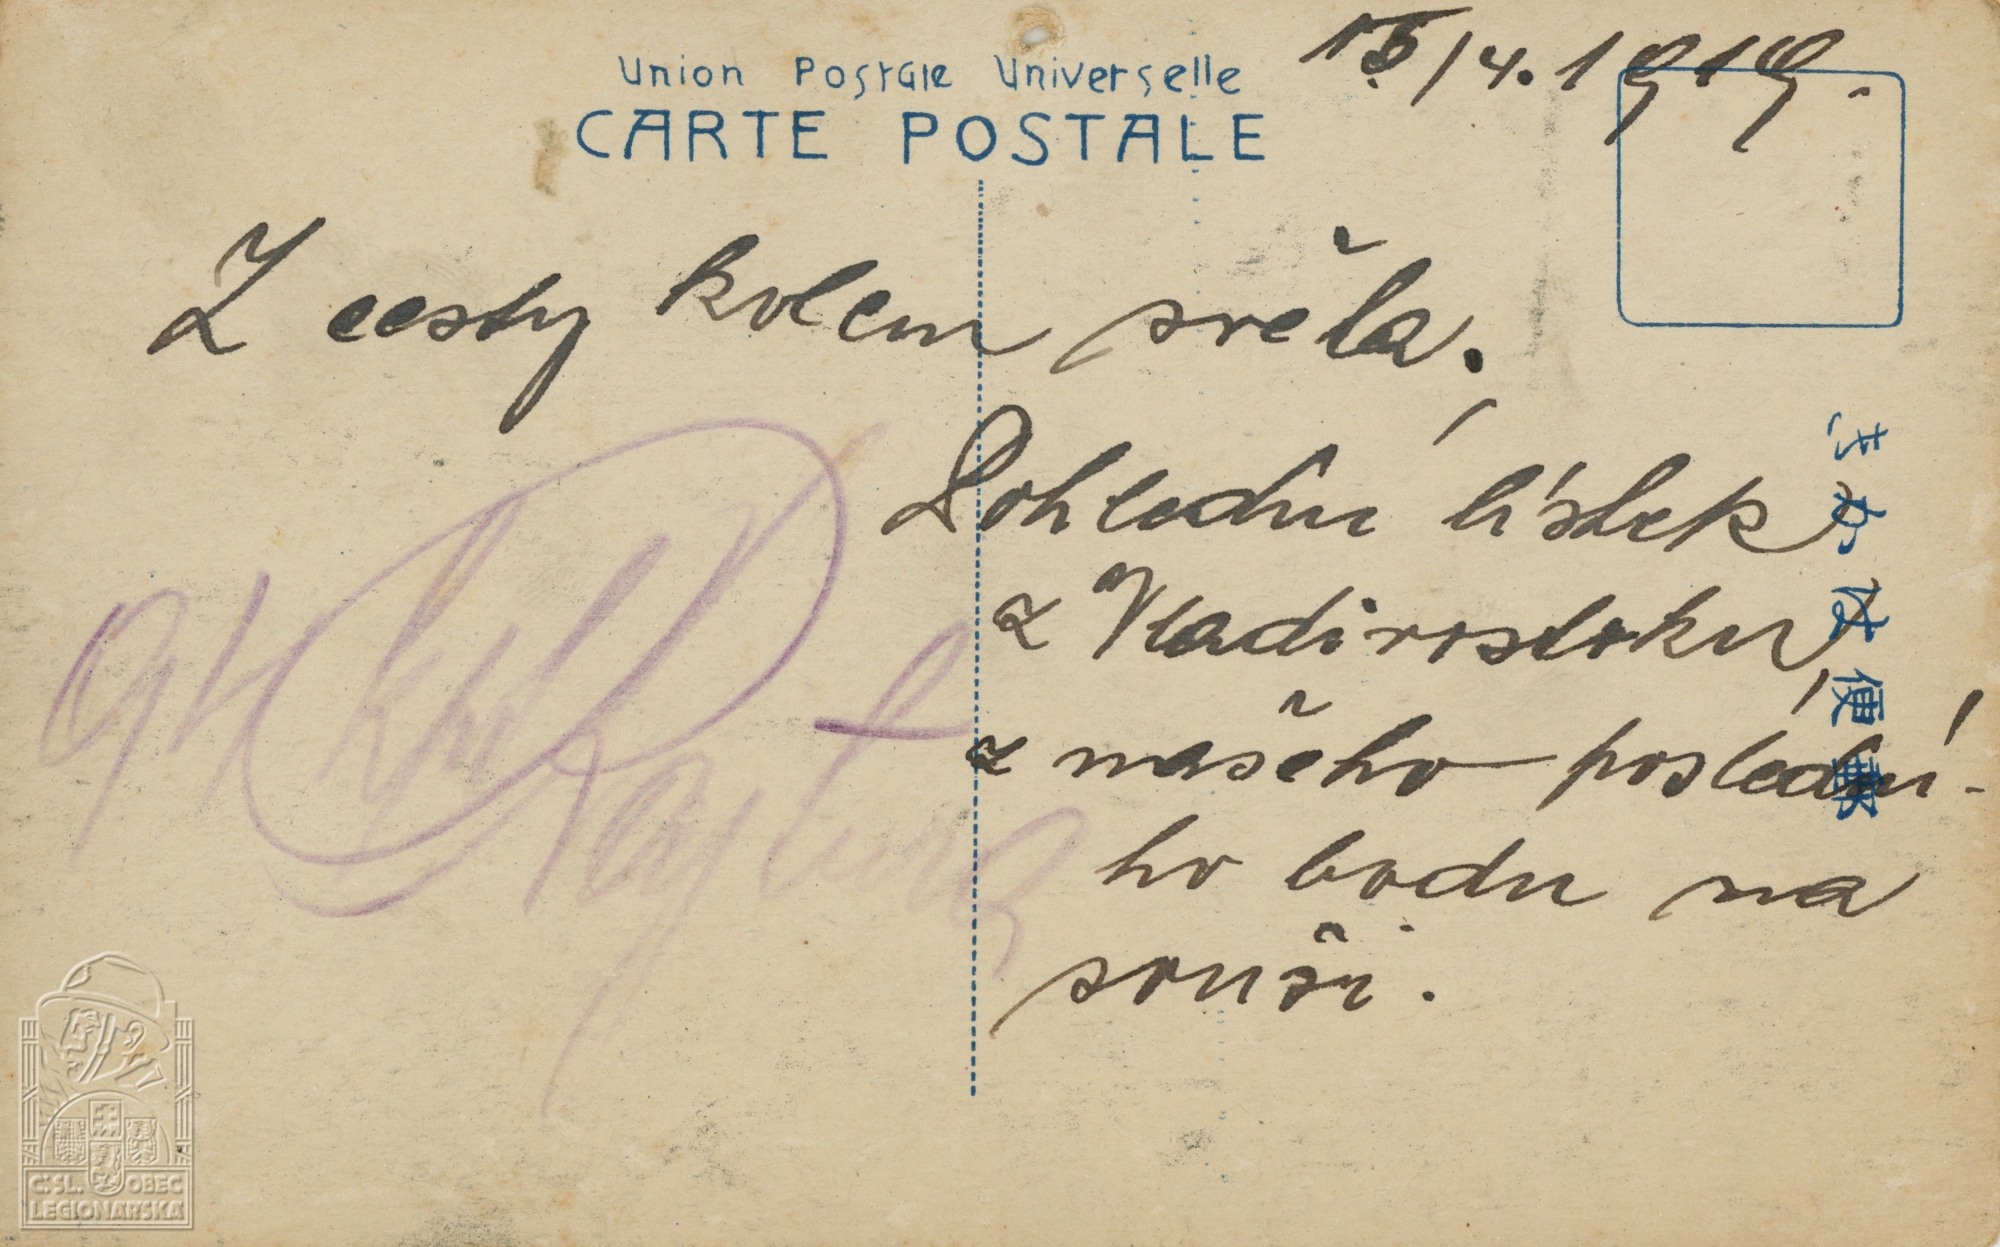 15/4. 1919.
Union Postale Universelle
CARTE POSTALE
Z cesty kolem světa.
Pohlední lístek
z Vladivostoku,
z našeho poslédní-
ho bodu na
souši.
きかは便郵
Č.SL. OBEC
LEGIONÁŘSKÁ